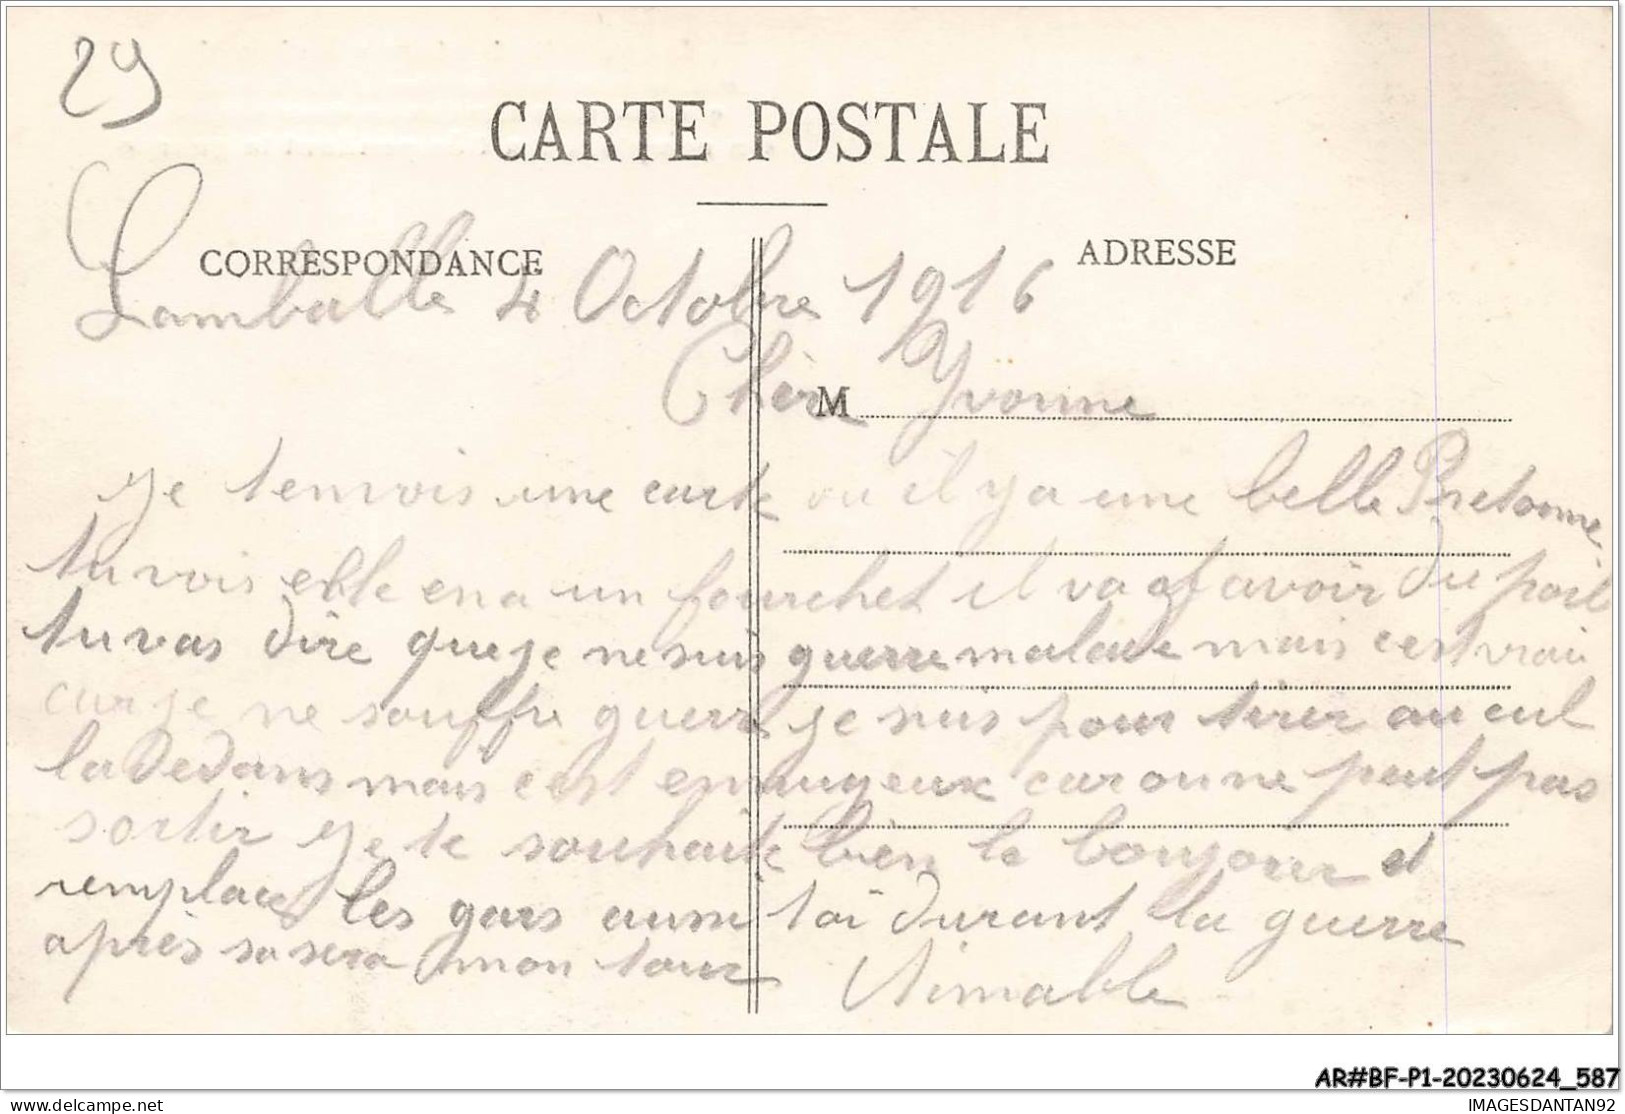 29
CARTE POSTALE
CORRESPONDANCE
ADRESSE
Lamballe 4 Octobre 1916
Chèr Yvonne
M
Je tenvois une carte ou il y a une belle Bretonne
tu vois elle en a un fourchet il va y avoir du poil
tu vas dire que je ne suis guerre malade mais cest vrai
car je ne souffre guerre je suis pour tirer au cul
la dedans mais cest ennuyeux car on ne peut pas
sortir je te souhaite bien le bonjour et
remplaces les gars aussi toi durant la guerre
après sa sera mon tour Aimable
AR#BF-P1-20230624_587
delcampe.net
IMAGESDANTAN92